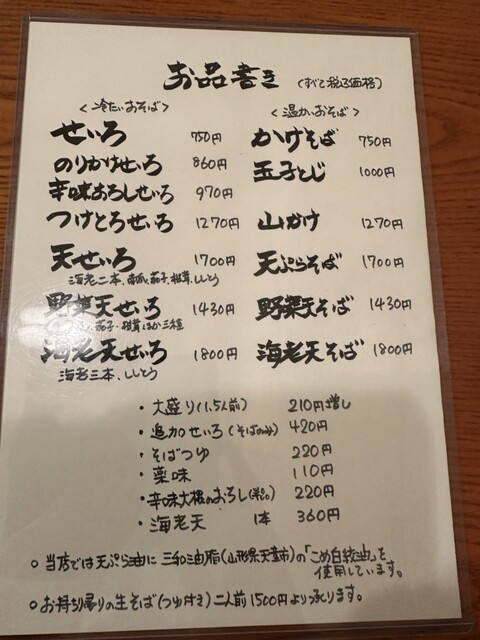 お品書き (すべて税込価格)
<冷たいおそば>
せいろ 750円
のりかけせいろ 860円
辛味おろしせいろ 970円
つけとろせいろ 1270円
天せいろ 1700円
海老二本、南瓜、茄子、椎茸、ししとう
野菜天せいろ 1430円
茄子・椎茸ほか三種
海老天せいろ 1800円
海老三本、ししとう
<温かいおそば>
かけそば 750円
玉子とじ 1000円
山かけ 1270円
天ぷらそば 1700円
野菜天そば 1430円
海老天そば 1800円
・大盛り(1.5人前) 210円増し
・追加せいろ(そばのみ) 420円
・そばつゆ 220円
・薬味 110円
・辛味大根のおろし 220円
・海老天 1本 360円
○当店では天ぷら油に三和油脂(山形県天童市)の「こめ白絞油」を
使用しています。
○お持ち帰りの生そば(つゆ付き)二人前1500円より承ります。